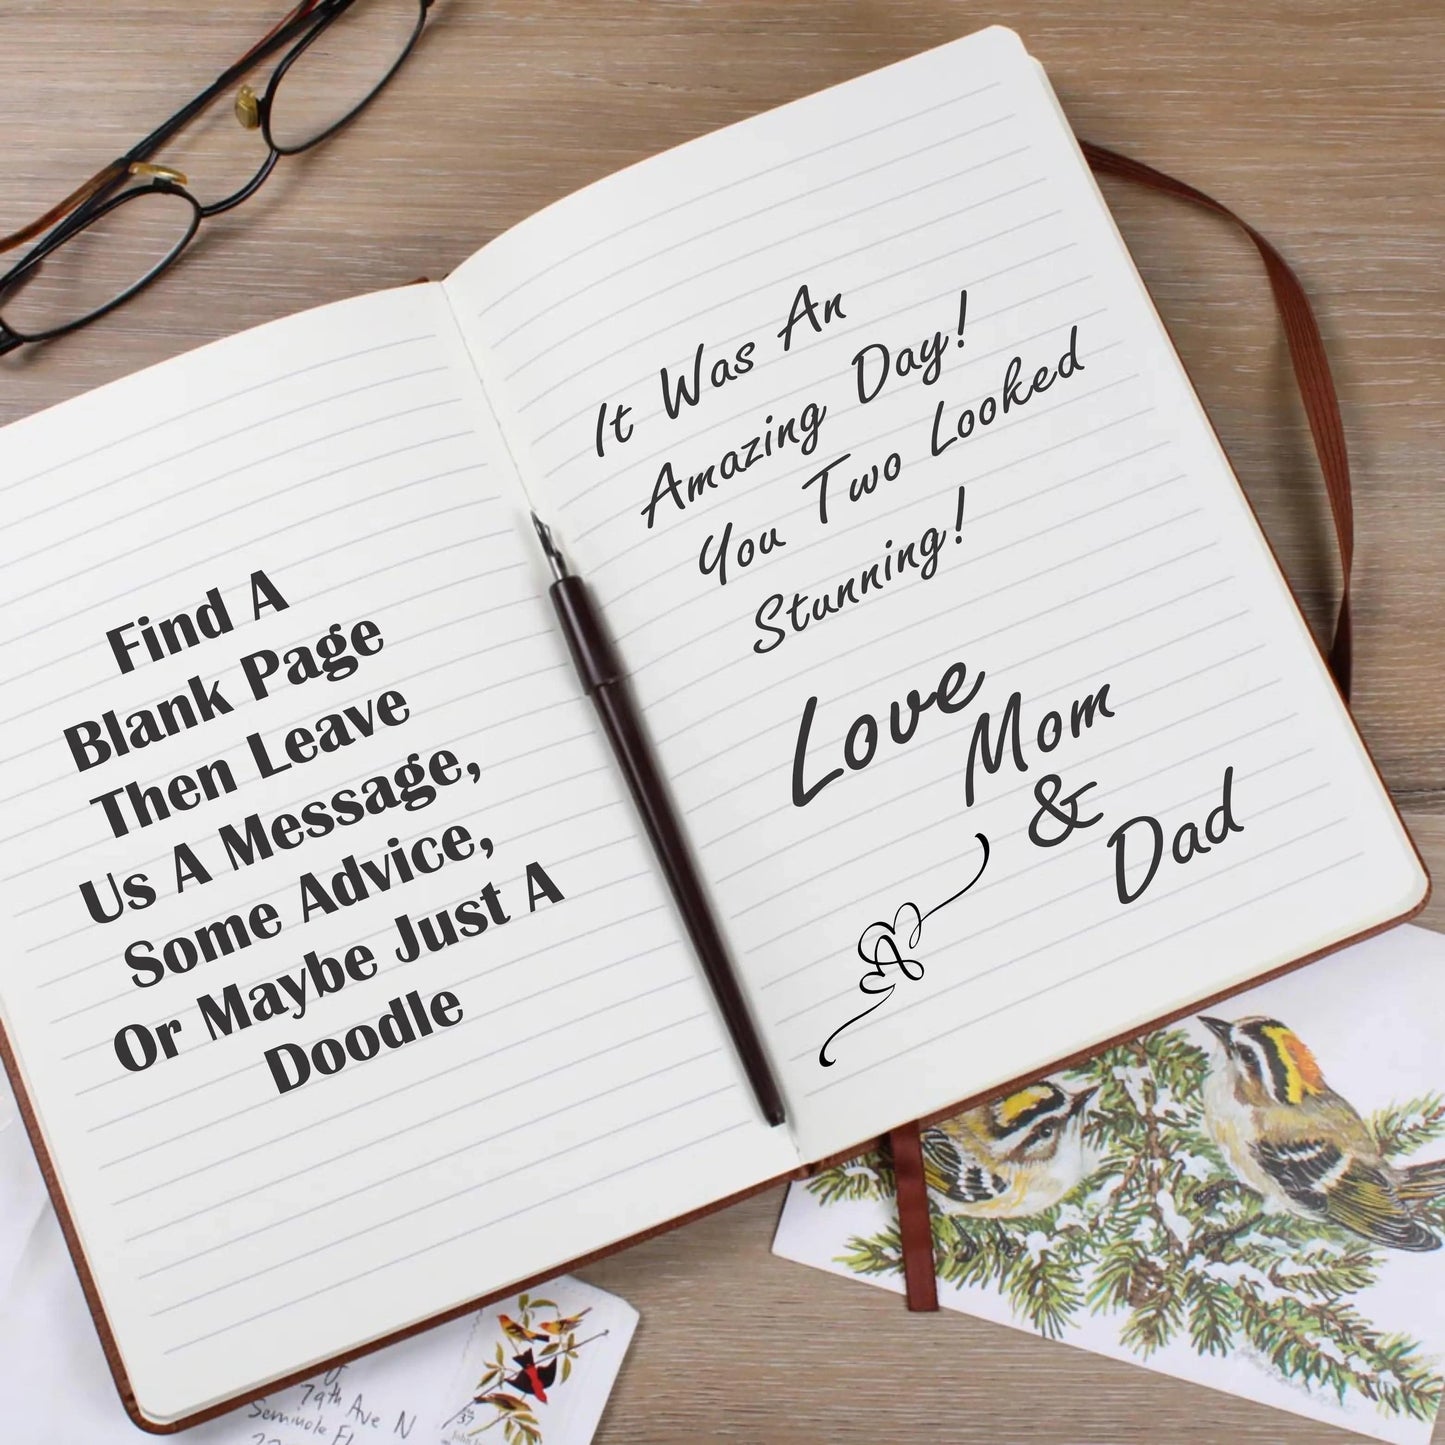 Find A
Blank Page
Then Leave
Us A Message,
Some Advice,
Or Maybe Just A
Doodle
It Was An
Amazing Day!
You Two Looked
Stunning!
Love
Mom
&
Dad
79th Ave N
Seminole Fl
37